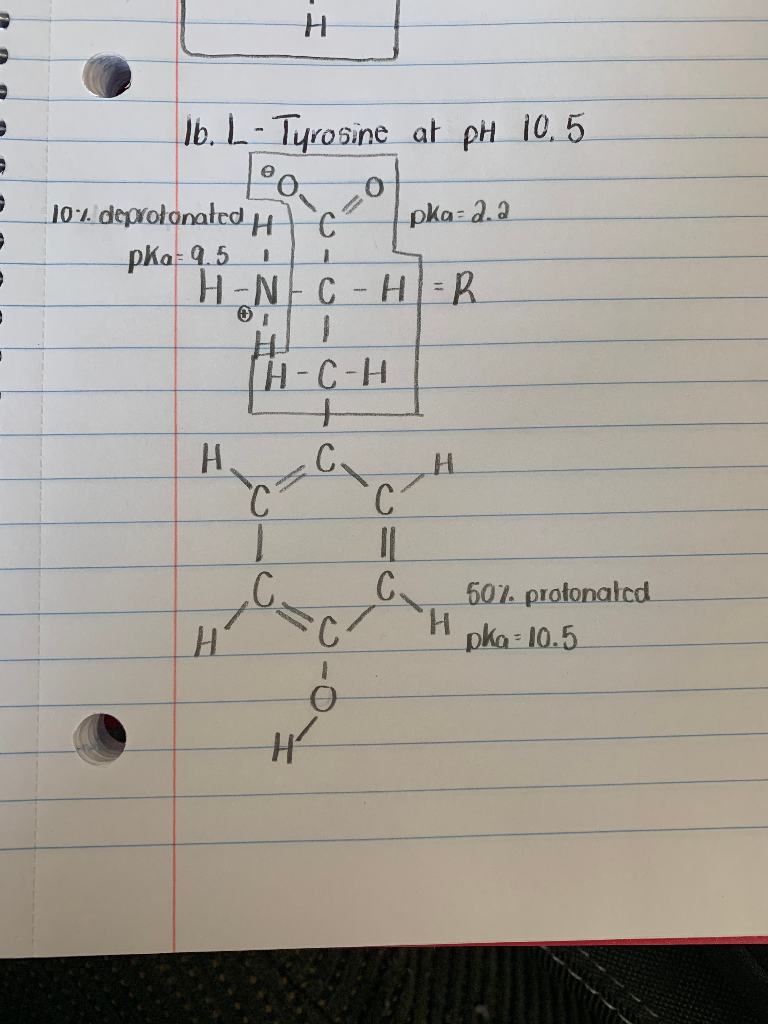 H
1b. L-Tyrosine at pH 10.5
⊖O O
10% deprotonated H C pka=2.2
pKa=9.5
H-N-C-H =R
⊕
H
H-C-H
H C H
C C
C C 50% protonated
H C H pka=10.5
O
H